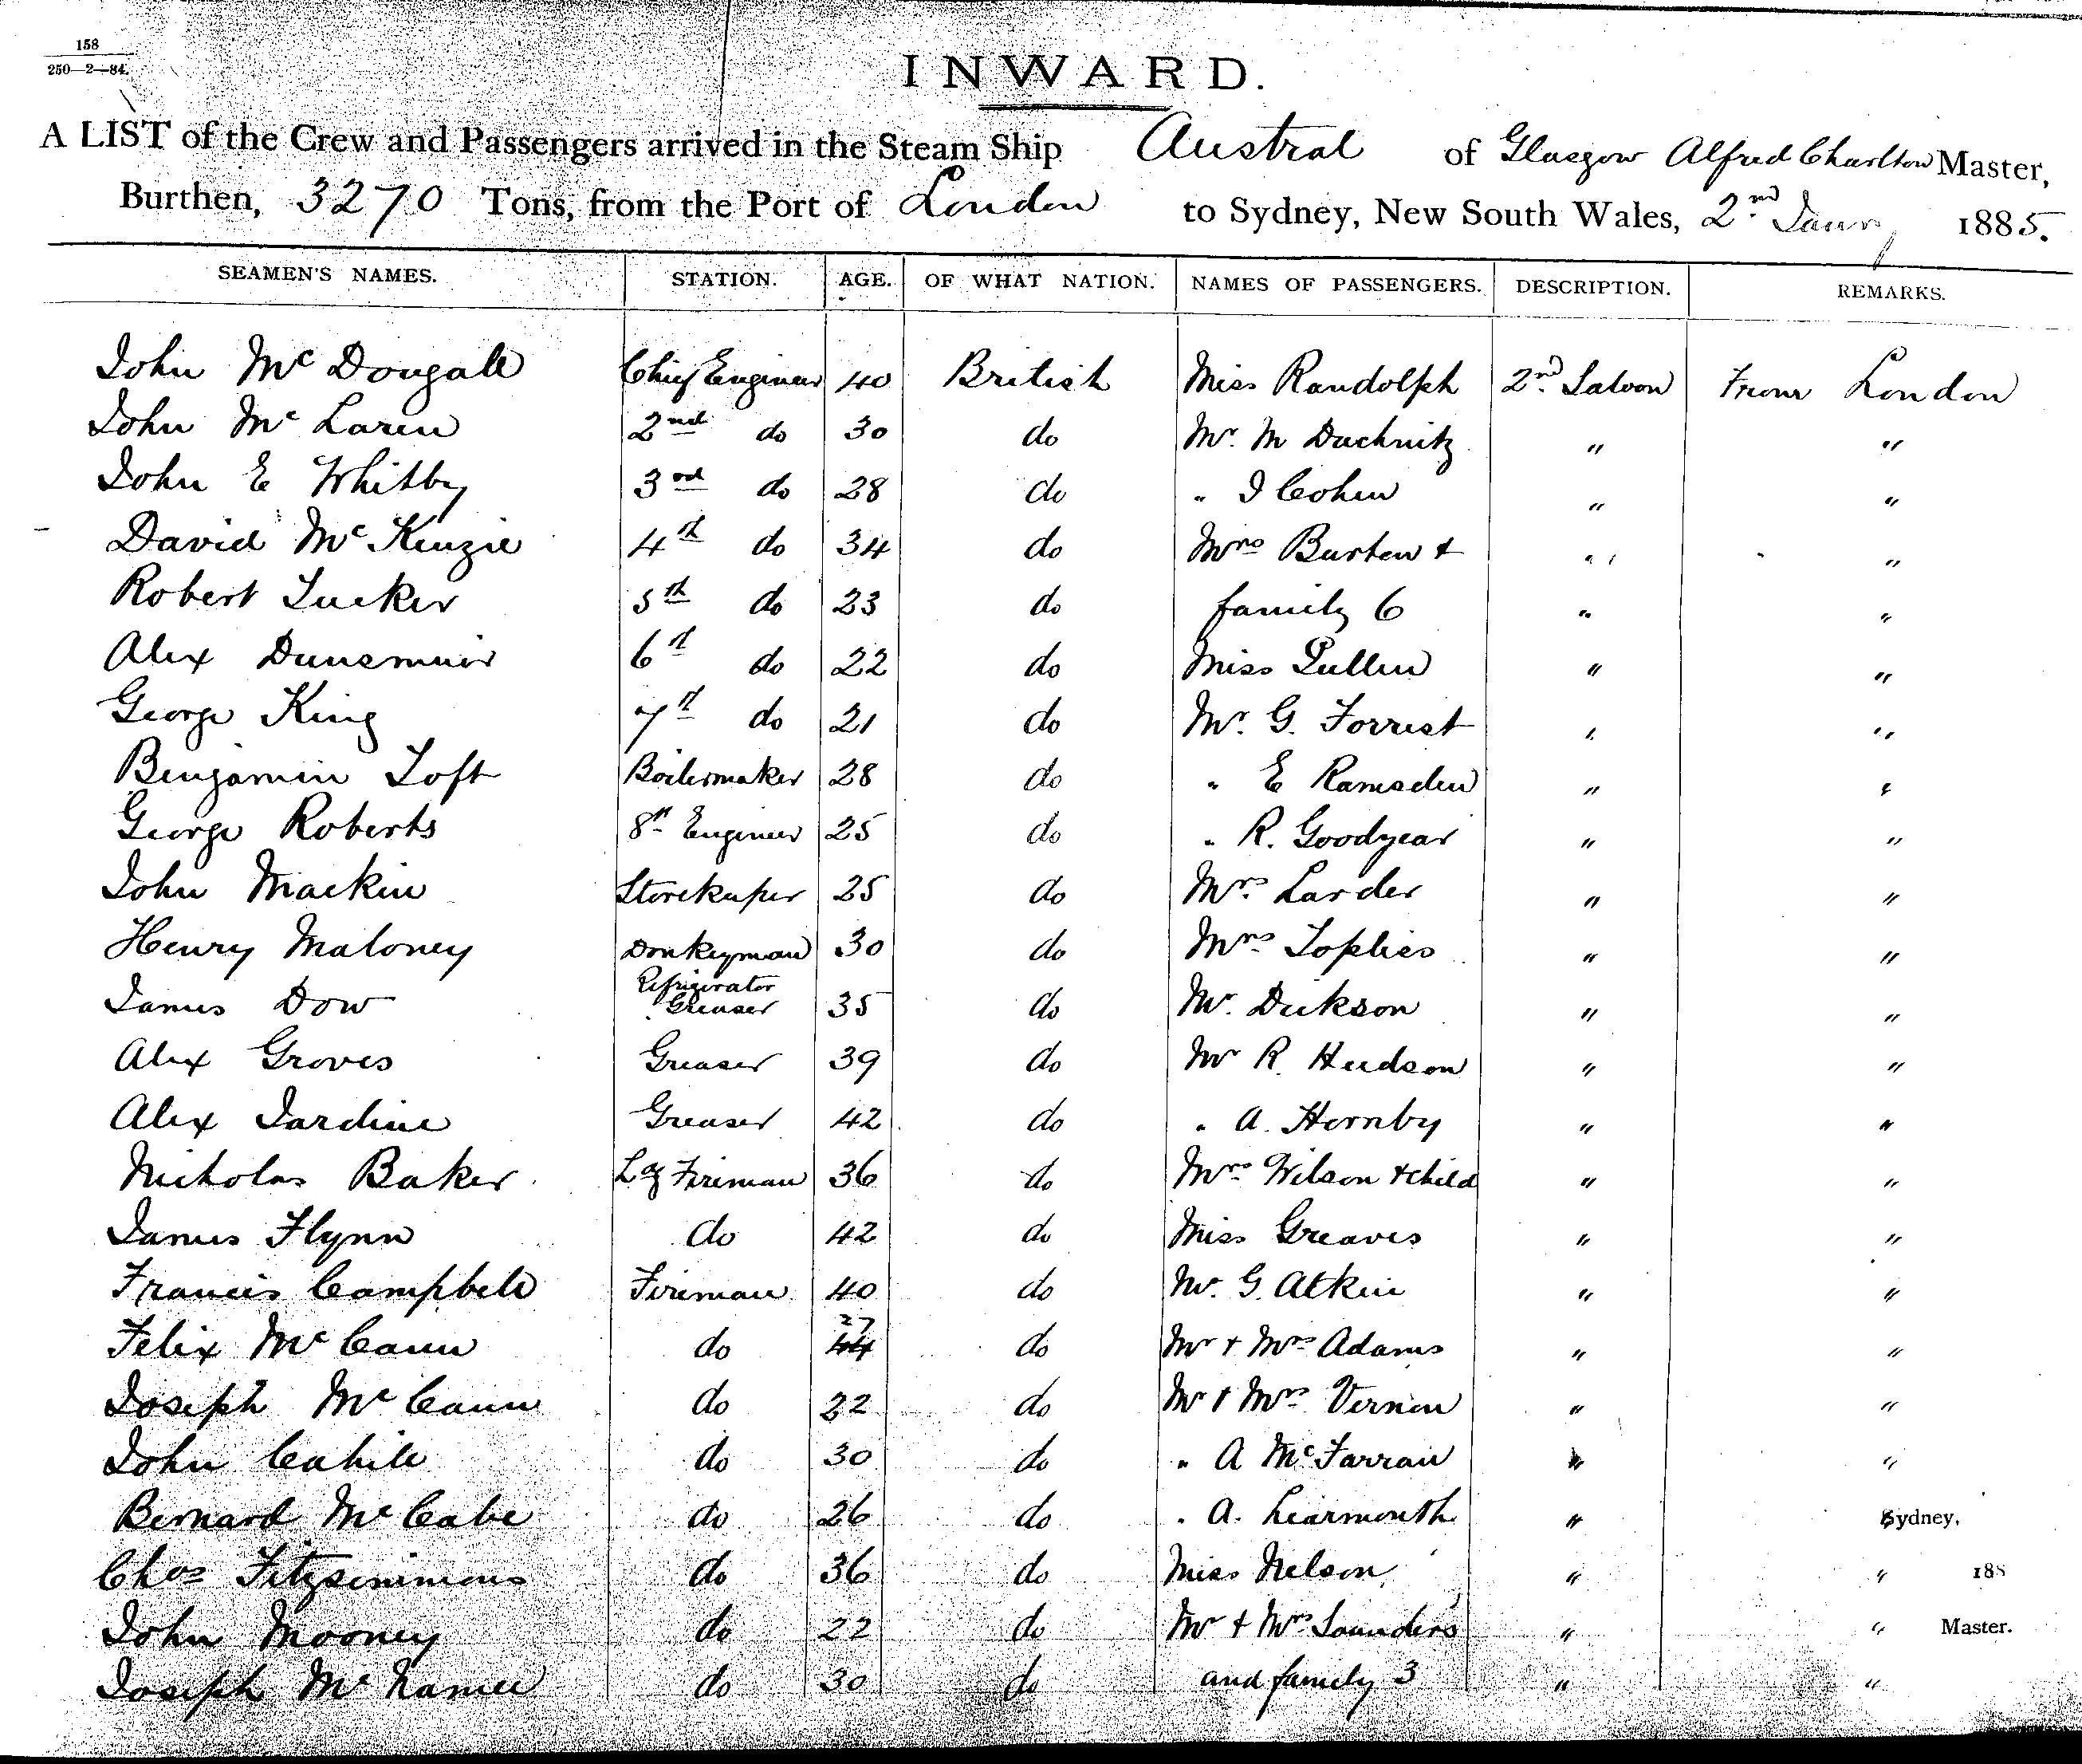 158
250—2—84.
INWARD.
A LIST of the Crew and Passengers arrived in the Steam Ship Austral of Glasgow Alfred Charlton Master,
Burthen, 3270 Tons, from the Port of London to Sydney, New South Wales, 2nd Jany 1885.
SEAMEN'S NAMES. STATION. AGE. OF WHAT NATION. NAMES OF PASSENGERS. DESCRIPTION. REMARKS.
John McDougall Chief Engineer 40 British Miss Randolph 2nd Saloon From London
John McLaren 2nd do 30 do Mr. M " "
John E Whitby 3rd do 28 do " I Cohen " "
David McKenzie 4th do 34 do Mrs Burton + " "
Robert Tucker 5th do 23 do family 6 " "
Alex Dunsmuir 6th do 22 do Miss Pullen " "
George King 7th do 21 do Mr. G. Forrest " "
Benjamin Toft Boilermaker 28 do " E Ramsden " "
George Roberts 8th Engineer 25 do " R. Goodyear " "
John Mackin Storekeeper 25 do Mrs Larder " "
Henry Maloney Donkeyman 30 do Mrs Toplies " "
James Dow Refrigerator Greaser 35 do Mr. Dickson " "
Alex Groves Greaser 39 do Mr R. Hudson " "
Alex Jardine Greaser 42 do " A. Hornby " "
Nicholas Baker Ldg Fireman 36 do Mrs Wilson + child " "
James Flynn do 42 do Miss Greaves " "
Francis Campbell Fireman 40 do Mr. G. Atkin " "
Felix McCann do 44 27 do Mr + Mrs Adams " "
Joseph McCann do 22 do Mr + Mrs Vernon " "
John Cahill do 30 do " A McFarran " "
Bernard McCabe do 26 do " A. Learmonth " Sydney,
Chas Fitzsimmons do 36 do Miss Nelson " " 188
John Mooney do 22 do Mr + Mrs Saunders " " Master.
Joseph McNamee do 30 do and family 3 " "